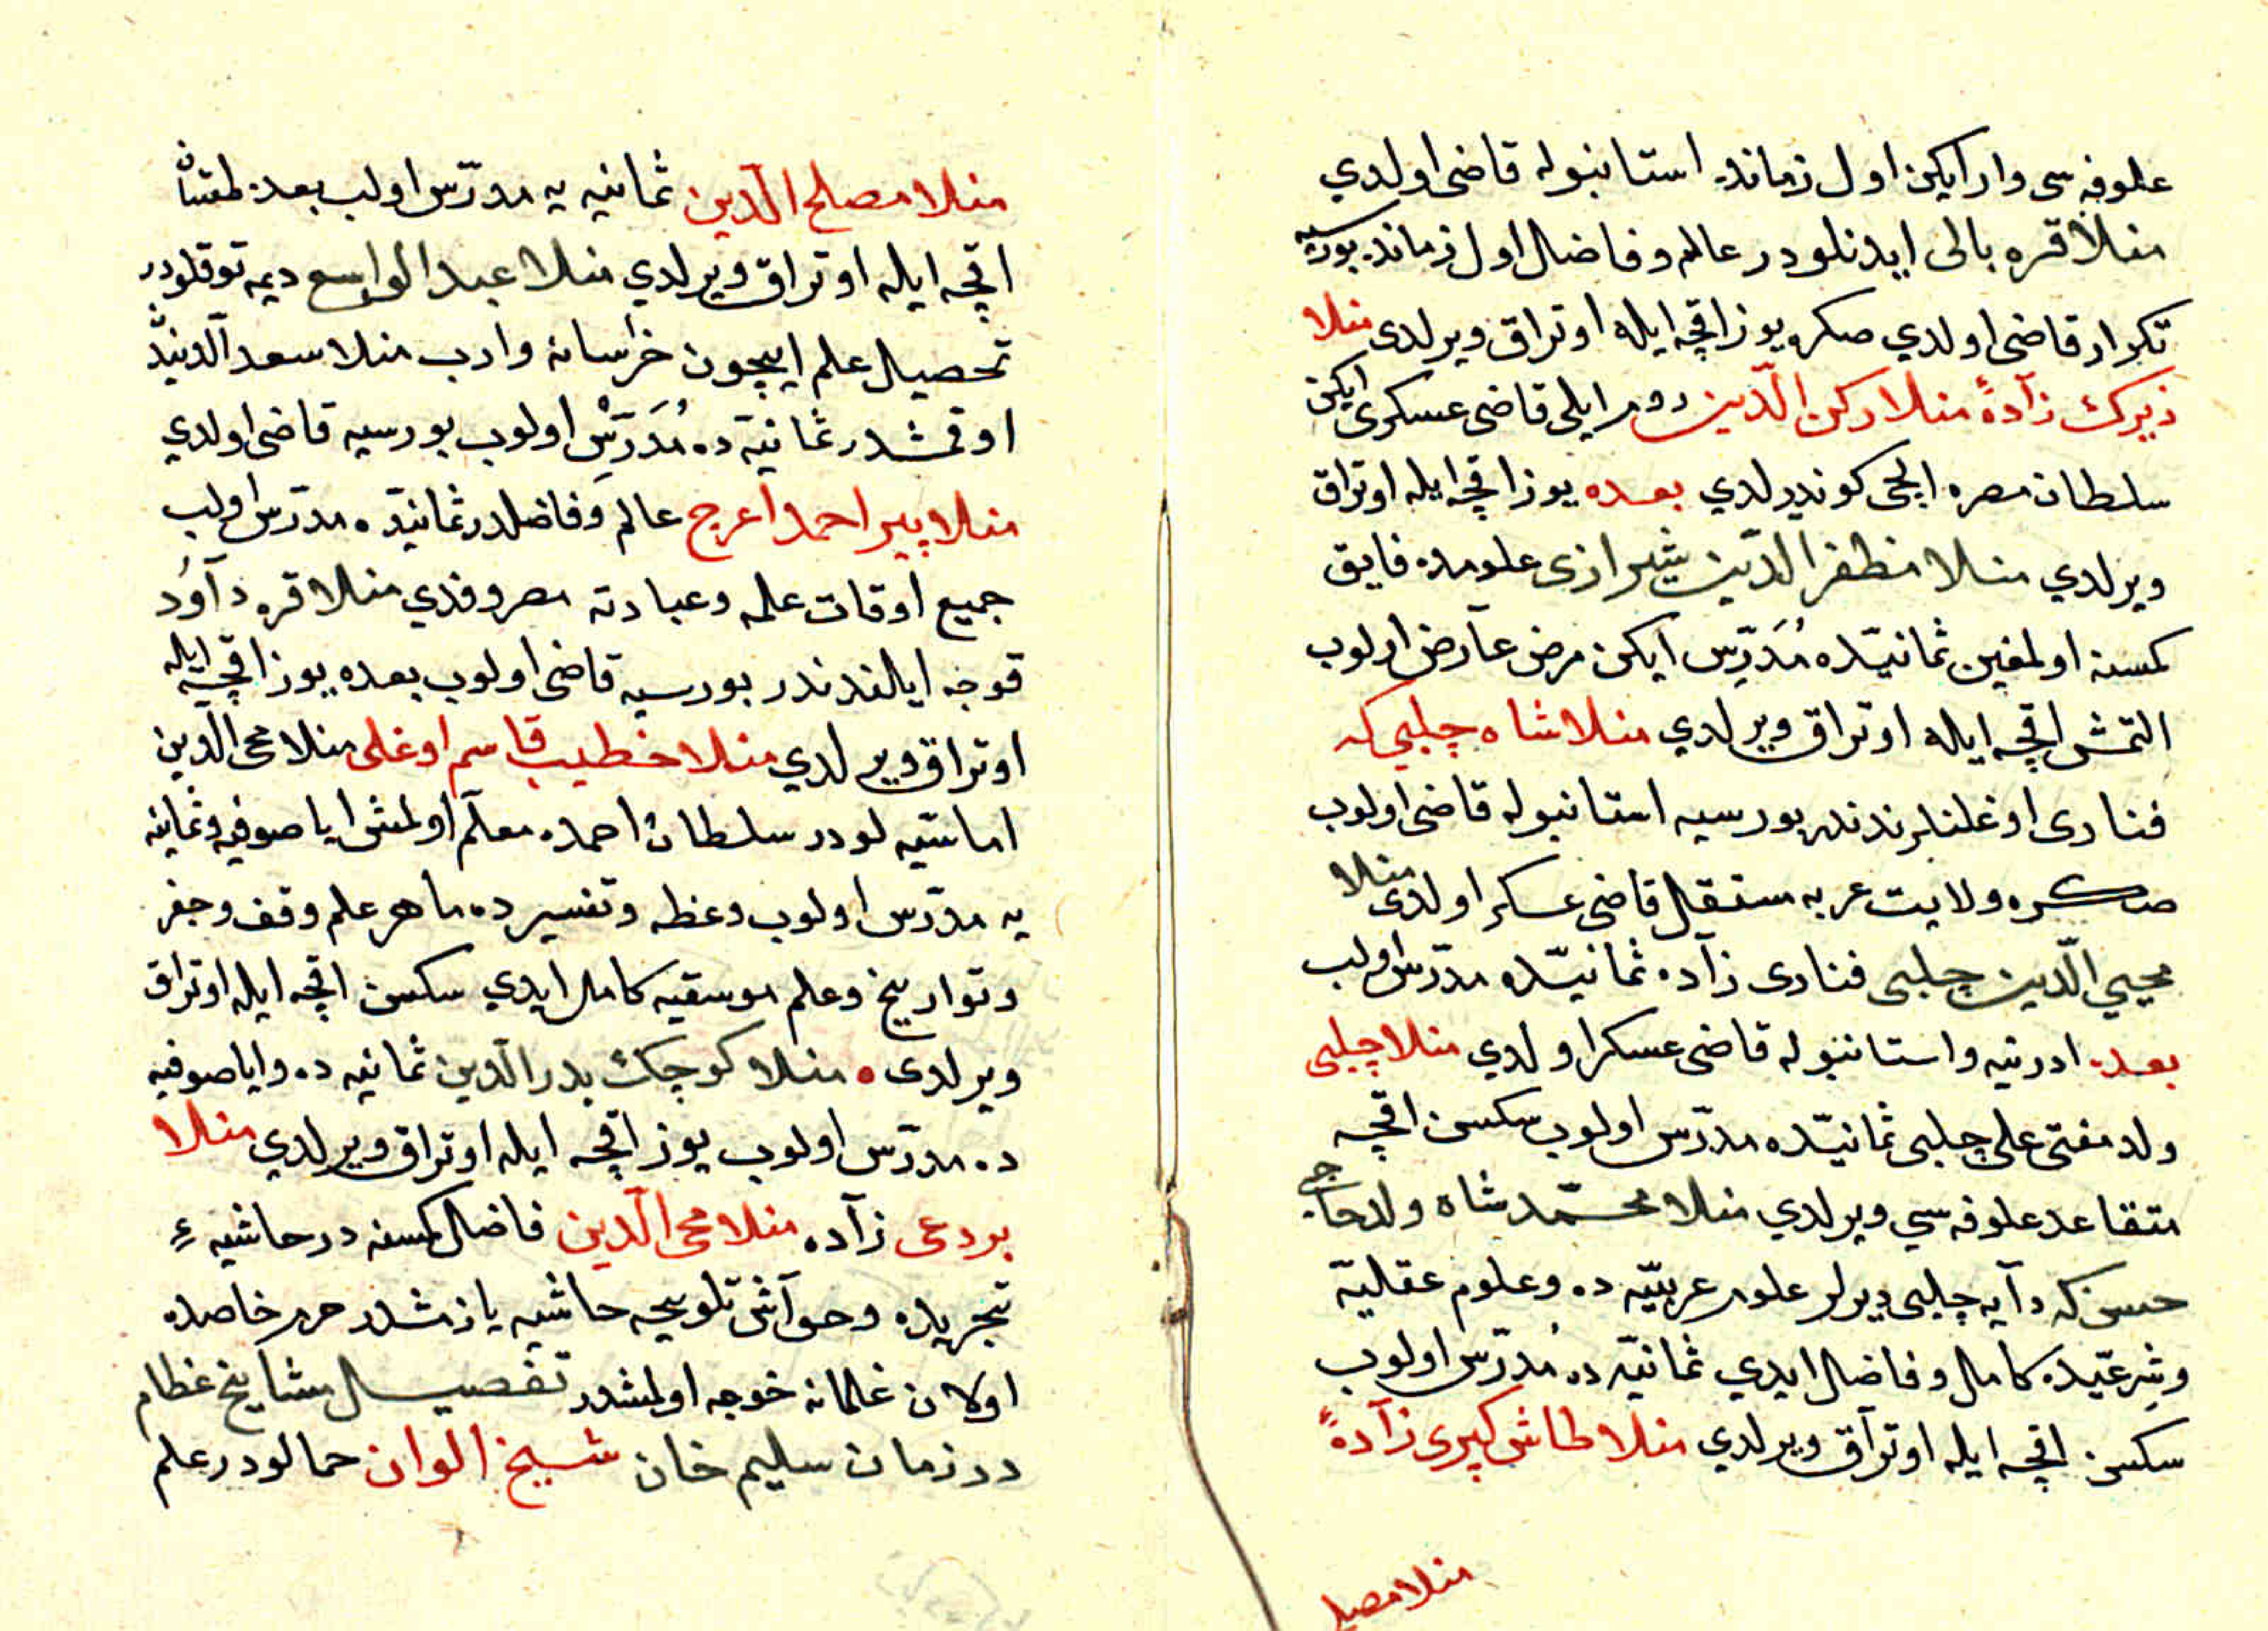 علوفه سی وار ایکن اول زمانده استانبوله قاضی اولدي
منلا قره بالی ایدنلودر عالم و فاضل اول زمانده بورسیه
تکرار قاضی اولدي صکره یوز اقچه ایله اوتراق ویرلدی منلا
زیرك زآدهٔ منلا رکن الدّین روم ایلی قاضی عسکری ایکن
سلطان مصره ایلچی کوندرلدي بعده یوز اقچه ایله اوتراق
ویرلدي منلا مظفر الدّین شیرازی علومده فایق
کمسنه اولمغین ثمانیّده مُدَرِّس ایکن مرض عآرض اولوب
التمش اقچه ایله اوتراق ویرلدي منلا شاه چلبی که
فناری اوغلنلرندندر بورسیه استانبوله قاضی اولوب
صکره ولایت عربه مستقل قاضی عسکر اولدی منلا
محیي الّدین چلبی فناری زآده ثمانیّده مدرّس اولب
بعده ادرنیه و استانبوله قاضی عسکر اولدي منلا چلبی
ولد مفتی علی چلبی ثمانیّده مدرّس اولوب سکسن اقچه
متقاعد علوفه سي ویرلدي منلا محمّد شاه ولد حاجی
حسن که دآیه چلبی دیرلر علوم عربیّه ده و علوم عقلیّه
و شرعیّده کامل و فاضل ایدي ثمانیّه ده مُدرّس اولوب
سکسن اقچه ایله اوترآق ویرلدي منلا طاش کپری زآدهٔ
منلا مصلح
منلا مصلح الّدین ثمانیه یه مدرّس اولب بعده طقسان
اقچه ایله اوتراق ویرلدي منلا عبد الواسع دیمه توقلودر
تحصیل علم ایچون خرٰسانه وارب منلا سعد الّدیندن
اوقمشدر ثمانیّه ده مُدَرِّسْ اولوب بورسیه قاضی اولدي
منلا پیر احمد اعرج عالم و فاضلدر ثمانیّده مدرّس اولب
جمیع اوقات علمه و عبادته مصروفدي منلا قره دآوُد
قوجه ایلندندر بورسیه قاضی اولوب بعده یوز اقچه ایله
اوتراق ویرلدي منلا خطیب قاسم اوغلی منلا محی الّدین
اماسیّه لودر سلطان احمده معلّم اولمش ایاصوفیه و ثمانیه
یه مدرّس اولوب وعظه و تفسیرده ماهر علم وقف و جفر
و تواریخ و علم موسقیه کامل ایدي سکسن اقچه ایله اوتراق
ویرلدی ه منلا کوچك بدر الّدین ثمانیه ده و ایاصوفیه
ده مدرّس اولوب یوز اقچه ایله اوتراق ویرلدي منلا
بردعی زآده منلا محی الّدین فاضل کمسنه در حاشیهٔ
تجریده و حوآشی تلویحه حاشیه یازمشدر حرم خاصده
اولان غلمانه خوجه اولمشدر تفصیل مشایخ عظام
در زمان سلیم خان شیخ الوان حمالودر علم